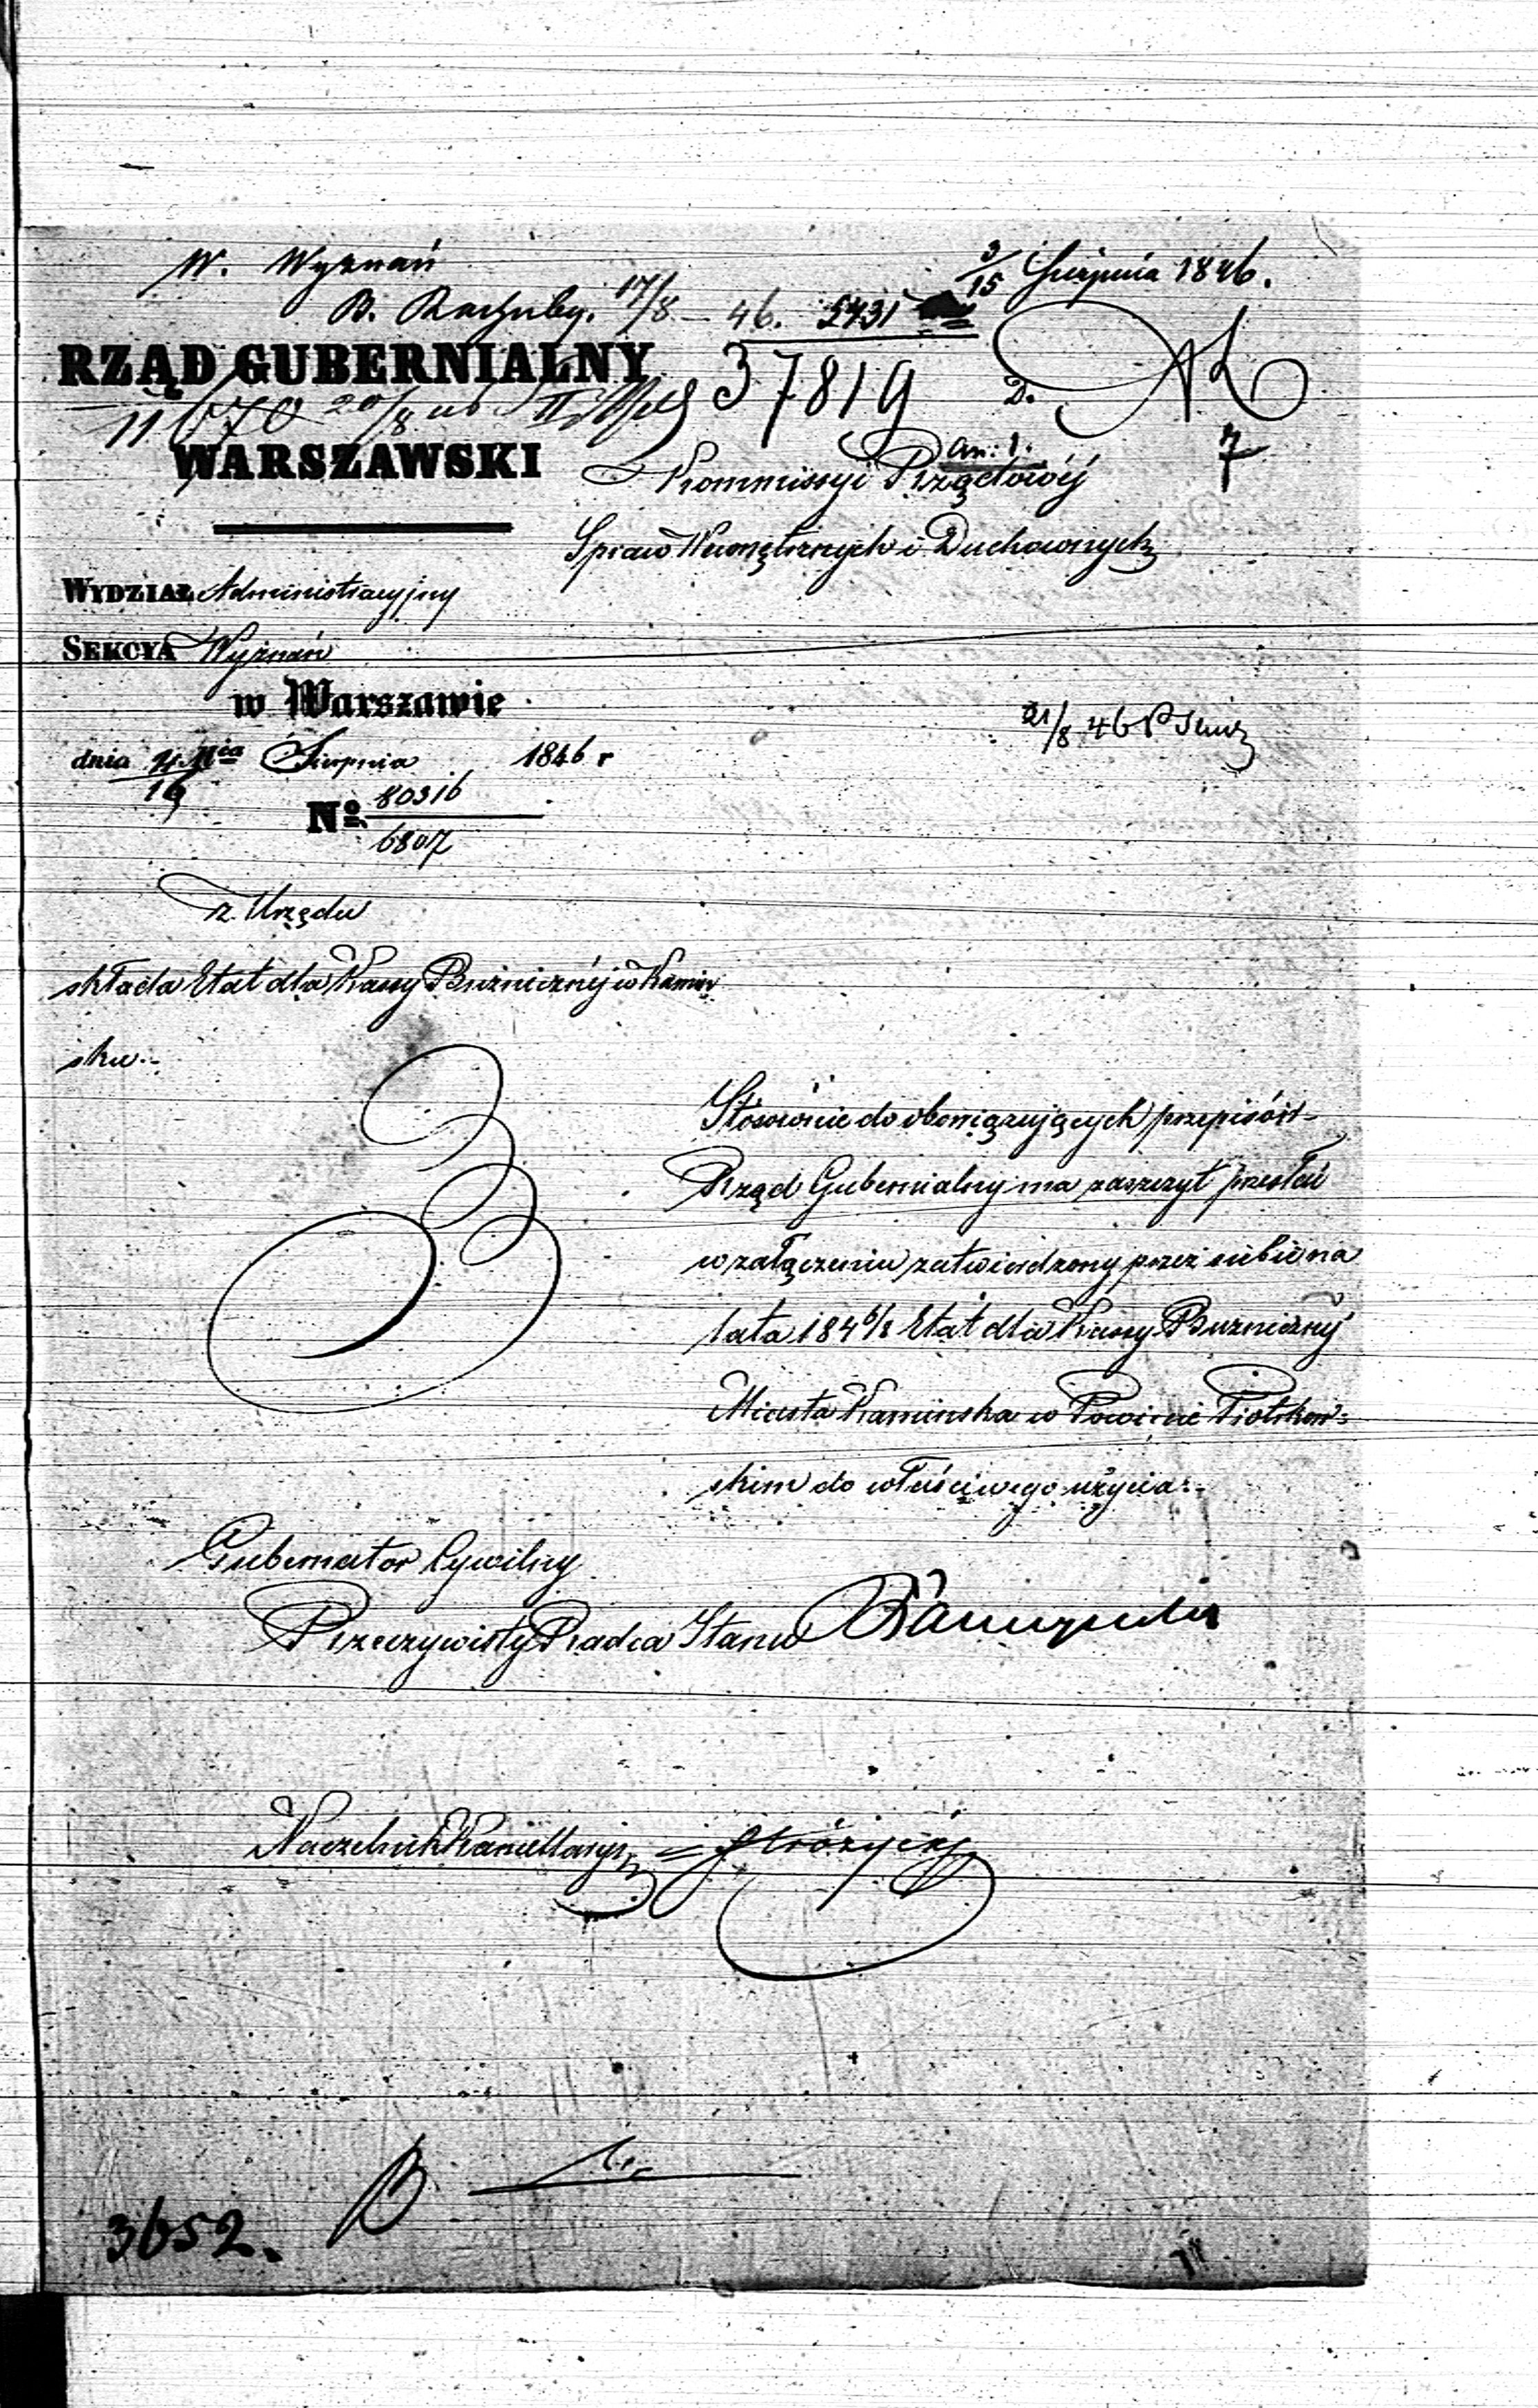 W. Wyznań
3/15 Sierpnia 1846.
B. Rachuby. 17/8 – 46. 5431
RZĄD GUBERNIALNY
37819
11670 20/8
WARSZAWSKI
an: 1.
7
Kommissyi Rządowéj
Spraw Wewnętrznych i Duchownych
WYDZIAŁ Administracyjny
SEKCYA Wyznań
w Warszawie
21/8 46
dnia Sierpnia 1846 r
No. 80316
6807
z Urzędu
składa Etat dla Kassy Bużnicznéj w Kamin
sku.-
Stósownie do obowiązujących przepisów
Rząd Gubernialny ma zaszczyt przesłać
w załączeniu zatwierdzony przez siebie na
lata 184 6/8 Etat dla Kassy Bużnicznéj
Miasta Kaminska w Powiecie Piotrkow=
skim do właściwego użycia.-
Gubernator Cywilny
Rzeczywisty Radca Stanu
Naczelnik Kancellaryi
3652.